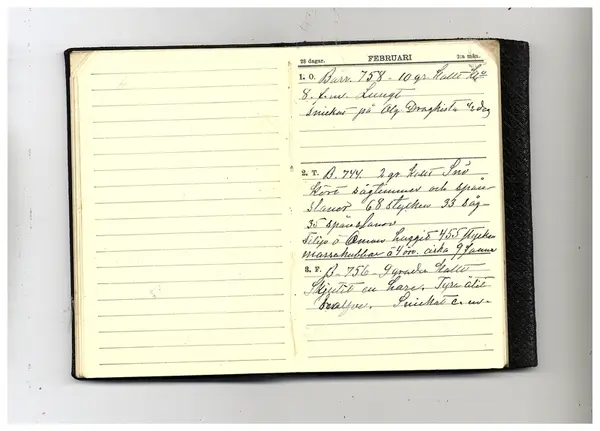 28 dagar. FEBRUARI 2:a mån.
1. O. Barr. 758 - 10 gr. Kallt
8. f.m. Lugnt
snickat på Alg. Dragkista ½ dag
2. T. B. 744. 2 gr Kallt Snö
Kört sågtimmer och spån
stavar 68 stycken 33 såg
35 spån stavar
Filip o Oman huggit 455 stycken
massakubbar à 4 ön. cirka 9
3. F. B - 756 - 9 grader Kallt
Skjutit en hare. Tyra ätit
Snickat e. m.